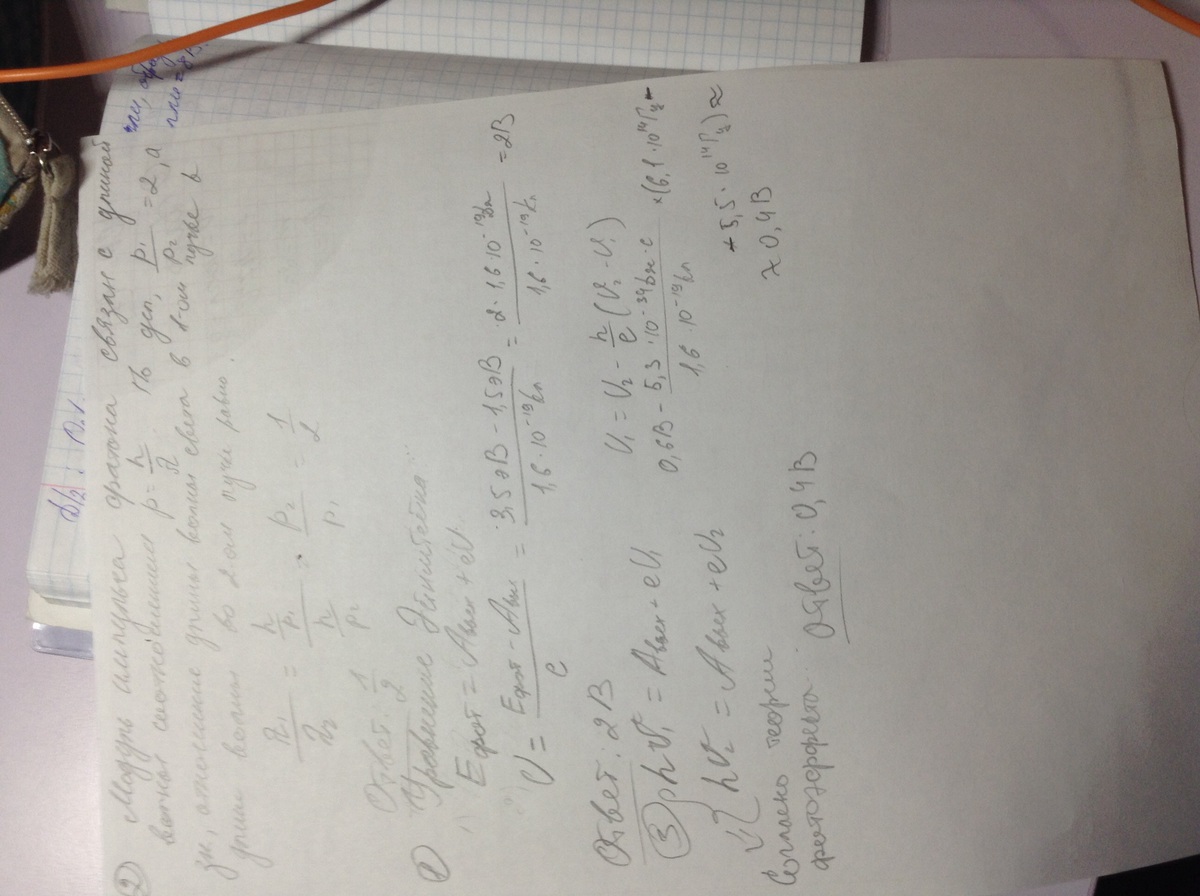 2) Модуль импульса фотона связан с длиной
волны соотношением p = h/λ. По усл, p₁/p₂ = 2, а
зн, отношение длины волны света в 1-ом пучке к
длине волны во 2-ом пучке равно.
λ₁/λ₂ = (h/p₁)/(h/p₂) = p₂/p₁ = 1/2
Ответ: 1/2
1) Уравнение Эйнштейна...
Eфот = Aвых + eU
U = (Eфот - Aвых)/e = (3,5эВ - 1,5эВ)/(1,6·10⁻¹⁹Кл) = (2·1,6·10⁻¹⁹Дж)/(1,6·10⁻¹⁹Кл) = 2В
Ответ: 2В
3) hν₁ = Aвых + eU₁
hν₂ = Aвых + eU₂
U₁ = U₂ - h/e (ν₂ - ν₁)
0,6В - (5,3·10⁻³⁴Дж·с)/(1,6·10⁻¹⁹Кл) × (6,1·10¹⁴Гц -
- 5,5·10¹⁴Гц) ≈
≈ 0,4В
Согласно теории
фотоэффекта.
Ответ: 0,4В